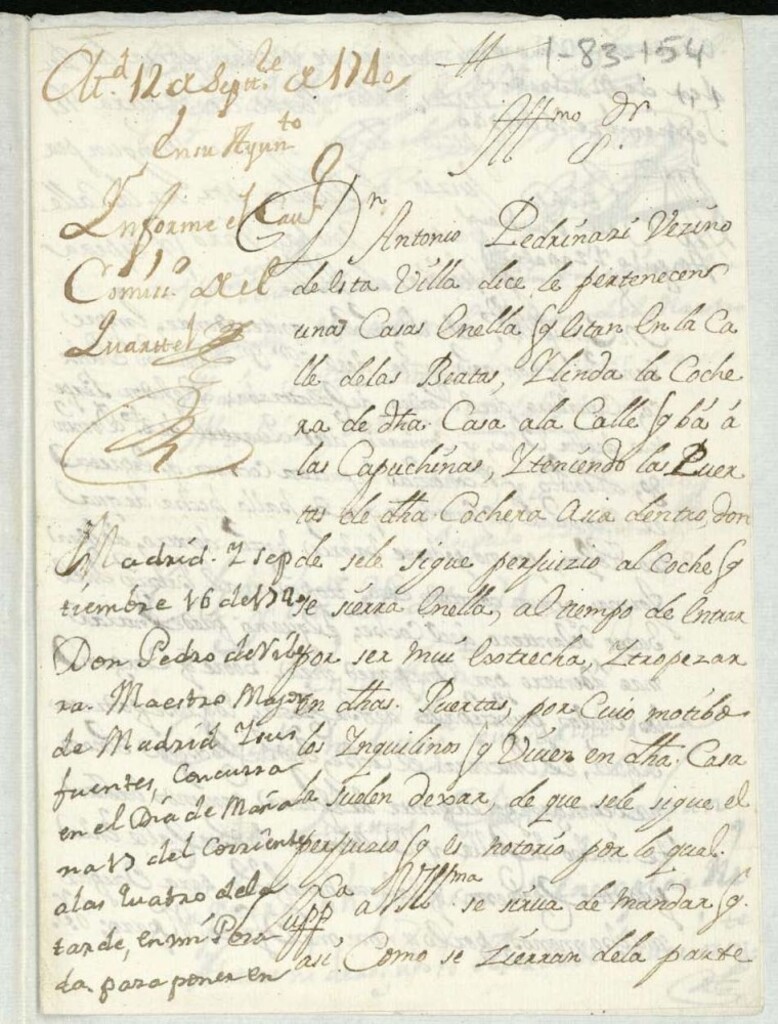 1-83-154
Md. 12 de Septre. de 1740
Illmo Sr.
En su Ayunto
Informe el Cavro
Comisio. del
Quartel
Dn Antonio Pedrinazi Vezino
de esta Villa dice le pertenecen
unas Casas en ella q estan en la Ca
lle de las Beatas, Y linda la Coche
ra de dha. Casa a la Calle q bá á
las Capuchinas, Y teniendo las Puer
tas de dha Cochera asia dentro, don
de se le sigue perjuizio al coche q
se sierra en ella, al tiempo de entrar
por ser mui Extrecha, Y tropezar
en dhas. Puertas, por Cuio motibo
los Ynquilinos q Viven en dha. Casa
la suelen dexar, de que se le sigue el
perjuizio q es notorio por lo qual.
Suppca a V Illma. se sirva de mandar q.
asi Como se Zierran de la parte
Madrid. Y sep
tiembre 16 de 1740
Don Pedro de Ribe
ra. Maestro Mayor
de Madrid Y sus
fuentes, Concurra
en el Día de Maña
na 17 del Corriente
a las quatro de la
tarde, en mi Posa
da. para poner en